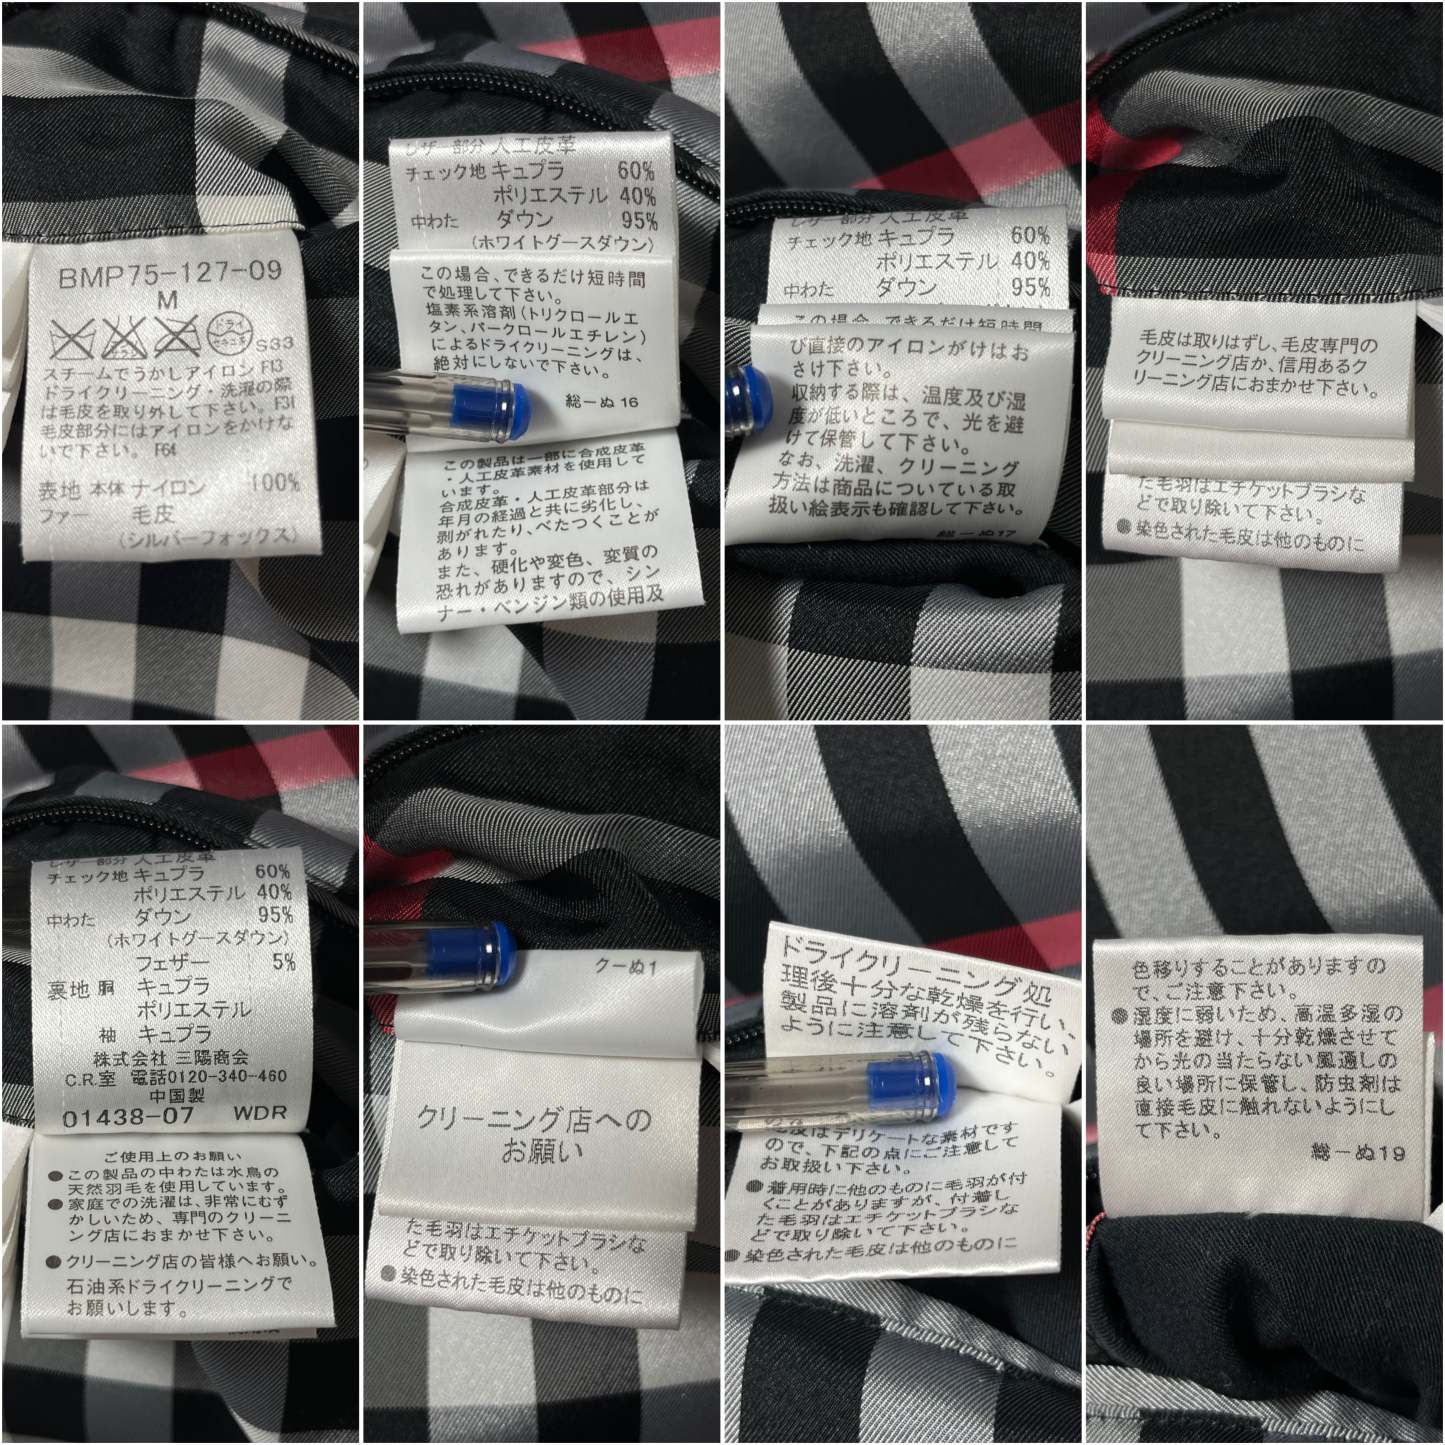 BMP75-127-09
M
ドライ
セキユ系
S33
スチームでうかしアイロン F13
ドライクリーニング・洗濯の際
は毛皮を取り外して下さい。F31
毛皮部分にはアイロンをかけな
いで下さい。 F64
表地 本体 ナイロン 100%
ファー 毛皮
(シルバーフォックス)
レザー部分 人工皮革
チェック地 キュプラ 60%
ポリエステル 40%
中わた ダウン 95%
(ホワイトグースダウン)
この場合、できるだけ短時間
で処理して下さい。
塩素系溶剤(トリクロールエ
タン、パークロールエチレン)
によるドライクリーニングは、
絶対にしないで下さい。
総ーぬ 16
この製品は一部に合成皮革
・人工皮革素材を使用して
います。
合成皮革・人工皮革部分は
年月の経過と共に劣化し、
剥がれたり、べたつくことが
あります。
また、硬化や変色、変質の
恐れがありますので、シン
ナー・ベンジン類の使用及
レザー部分 人工皮革
チェック地 キュプラ 60%
ポリエステル 40%
中わた ダウン 95%
この場合、できるだけ短時間
び直接のアイロンがけはお
さけ下さい。
収納する際は、温度及び湿
度が低いところで、光を避
けて保管して下さい。
なお、洗濯、クリーニング
方法は商品についている取
扱い絵表示も確認して下さい。
総ーぬ17
毛皮は取りはずし、毛皮専門の
クリーニング店か、信用あるク
リーニング店におまかせ下さい。
た毛羽はエチケットブラシな
どで取り除いて下さい。
●染色された毛皮は他のものに
レザー部分 人工皮革
チェック地 キュプラ 60%
ポリエステル 40%
中わた ダウン 95%
(ホワイトグースダウン)
フェザー 5%
裏地 胴 キュプラ
ポリエステル
袖 キュプラ
株式会社 三陽商会
C.R.室 電話0120-340-460
中国製
01438-07 WDR
ご使用上のお願い
●この製品の中わたは水鳥の
天然羽毛を使用しています。
●家庭での洗濯は、非常にむず
かしいため、専門のクリーニ
ング店におまかせ下さい。
●クリーニング店の皆様へお願い。
石油系ドライクリーニングで
お願いします。
クーぬ1
クリーニング店への
お願い
た毛羽はエチケットブラシな
どで取り除いて下さい。
●染色された毛皮は他のものに
ドライクリーニング処
理後十分な乾燥を行い、
製品に溶剤が残らない
ように注意して下さい。
毛皮はデリケートな素材です
ので、下記の点にご注意して
お取扱い下さい。
●着用時に他のものに毛羽が付
くことがありますが、付着し
た毛羽はエチケットブラシな
どで取り除いて下さい。
●染色された毛皮は他のものに
色移りすることがありますの
で、ご注意下さい。
●湿度に弱いため、高温多湿の
場所を避け、十分乾燥させて
から光の当たらない風通しの
良い場所に保管し、防虫剤は
直接毛皮に触れないようにし
て下さい。
総ーぬ19